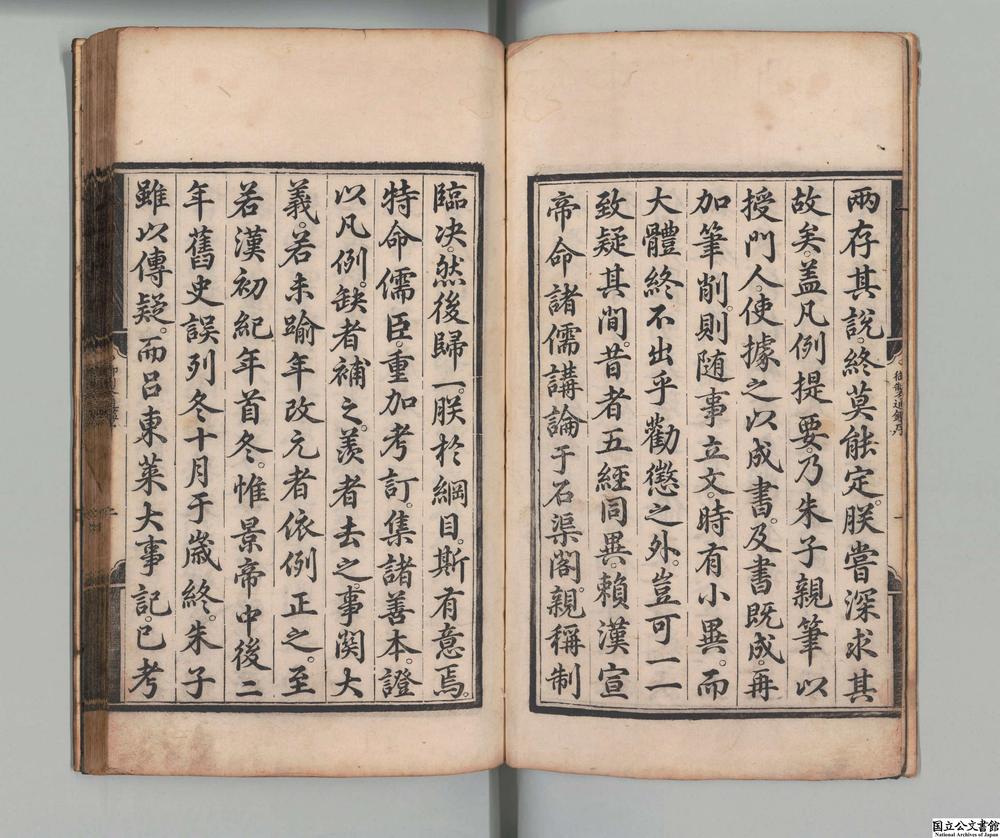 兩存其說。終莫能定。朕嘗深求其
故矣。盖凡例提要。乃朱子親筆以
授門人。使據之以成書。及書既成。再
加筆削。則随事立文。時有小異。而
大體終不出乎勸懲之外。豈可一一
致疑其間。昔者五經同異。賴漢宣
帝命諸儒講論于石渠閣。親稱制
臨决。然後歸一。朕於綱目。斯有意焉。
特命儒臣。重加考訂。集諸善本。證
以凡例。缺者補之。羡者去之。事関大
義。若未踰年改元者依例正之。至
若漢初紀年首冬。惟景帝中後二
年舊史誤列冬十月于歲終。朱子
雖以傳疑。而呂東萊大事記。已考
国立公文書館
National Archives of Japan